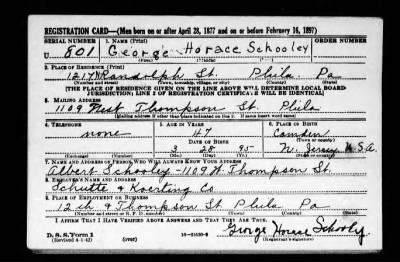 REGISTRATION CARD—(Men born on or after April 28, 1877 and on or before February 16, 1897)
SERIAL NUMBER 1. NAME (Print) ORDER NUMBER
U 501 George Horace Schooley
(First) (Middle) (Last)
2. PLACE OF RESIDENCE (Print)
1217 N Randolph St. Phila Pa
(Number and street) (Town, township, village, or city) (County) (State)
[THE PLACE OF RESIDENCE GIVEN ON THE LINE ABOVE WILL DETERMINE LOCAL BOARD
JURISDICTION; LINE 2 OF REGISTRATION CERTIFICATE WILL BE IDENTICAL]
3. MAILING ADDRESS
1109 West Thompson St. Phila
[Mailing address if other than place indicated on line 2. If same insert word same]
4. TELEPHONE 5. AGE IN YEARS 6. PLACE OF BIRTH
none 47 Camden
DATE OF BIRTH (Town or county)
3 28 95 N. Jersey U.S.A.
(Exchange) (Number) (Mo.) (Day) (Yr.) (State or country)
7. NAME AND ADDRESS OF PERSON WHO WILL ALWAYS KNOW YOUR ADDRESS
Albert Schooley - 1109 W. Thompson St.
8. EMPLOYER'S NAME AND ADDRESS
Schutte & Koerting Co
9. PLACE OF EMPLOYMENT OR BUSINESS
12th & Thompson St Phila Pa
(Number and street or R. F. D. number) (Town) (County) (State)
I AFFIRM THAT I HAVE VERIFIED ABOVE ANSWERS AND THAT THEY ARE TRUE.
D. S. S. Form 1
(Revised 4-1-42) (over) George Horace Schooley
(Registrant's signature)